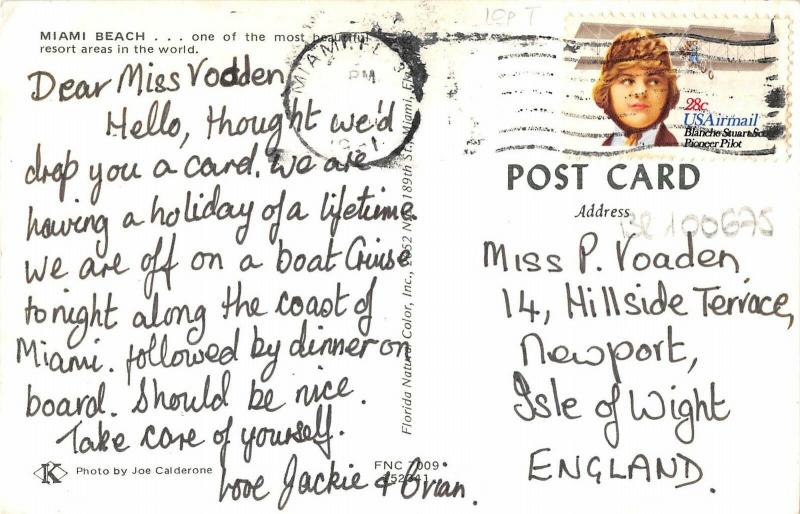 MIAMI BEACH . . . one of the most beautiful
resort areas in the world.
Dear Miss Vodden
Hello, thought we'd
drop you a card. We are
having a holiday of a lifetime.
We are off on a boat Cruise
tonight along the coast of
Miami. followed by dinner on
board. Should be nice.
Take care of yourself.
Love Jackie & Brian.
K
Photo by Joe Calderone
FNC 7009
Florida Natural Color, Inc., 189th St., Miami, Fla.
MIAMI, FL
PM
28c
USAirmail
Blanche Stuart Scott
Pioneer Pilot
POST CARD
Address
BE100675
Miss P. Voaden
14, Hillside Terrace,
Newport,
Isle of Wight
ENGLAND.